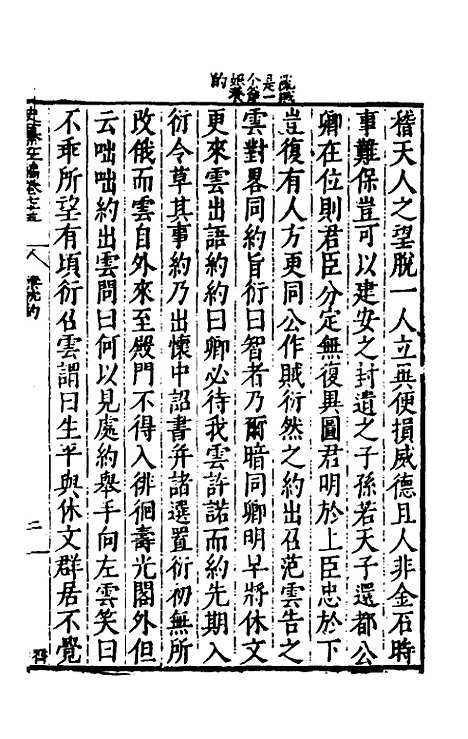 稽天人之望脫一人立異便損威德且人非金石時
事難保豈可以建安之封遺之子孫若天子還都公
卿在位則君臣分定無復異圖君明於上臣忠於下
豈復有人方更同公作賊衍然之約出召范雲告之
雲對畧同約旨衍曰智者乃爾暗同卿明早將休文
更來雲出語約約曰卿必待我雲許諾而約先期入
衍令草其事約乃出懷中詔書并諸選置衍初無所
改俄而雲自外來至殿門不得入徘徊壽光閣外但
云咄咄約出雲問曰何以見處約舉手向左雲笑曰
不乖所望有頃衍召雲謂曰生平與休文群居不覺
史纂左編卷
沈約
二